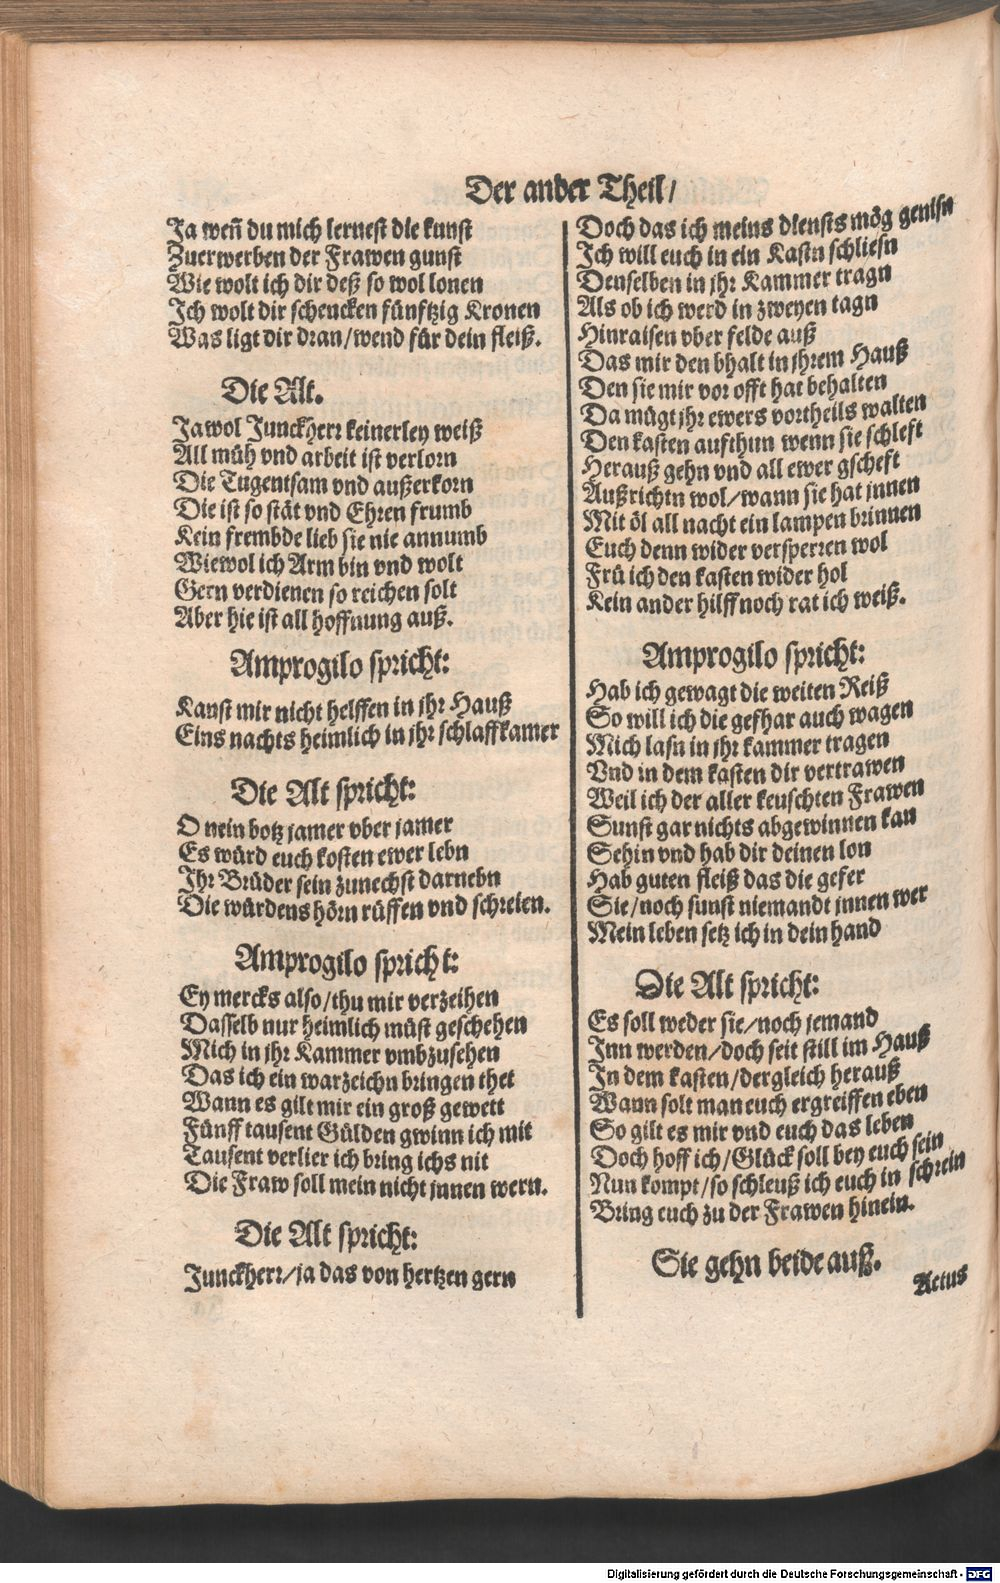 Der ander Theil/
Ja weñ du mich lernest die kunst
Zuerwerben der Frawen gunst
Wie wolt ich dir deß so wol lonen
Ich wolt dir schencken fünfftzig Kronen
Was ligt dir dran/wend für dein fleiß.
Die Alt.
Jawol Junckherr keinerley weiß
All müh vnd arbeit ist verlorn
Die Tugentsam vnd außerkorn
Die ist so stät vnd Ehren frumb
Kein frembde lieb sie nie annumb
Wiewol ich Arm bin vnd wolt
Gern verdienen so reichen solt
Aber hie ist all hoffnung auß.
Amprogilo spricht:
Kanst mir nicht helffen in jhr Hauß
Eins nachts heimlich in jhr schlaffkamer
Die Alt spricht:
O nein botz jamer vber jamer
Es würd euch kosten ewer lebn
Ihr Brüder sein zunechst darnebn
Die würdens hörn rüffen vnd schreien.
Amprogilo spricht:
Ey mercks also/thu mir verzeihen
Dasselb nur heimlich müst geschehen
Mich in jhr Kammer vmbzusehen
Das ich ein warzeichn bringen thet
Wann es gilt mir ein groß gewett
Fünff tausent Gülden gwinn ich mit
Tausent verlier ich bring ichs nit
Die Fraw soll mein nicht jnnen wern.
Die Alt spricht:
Junckherr/ja das von hertzen gern
Doch das ich meins diensts mög genisn
Ich will euch in ein Kastn schliesn
Denselben in jhr Kammer tragn
Als ob ich werd in zweyen tagn
Hinraisen vber felde auß
Das mir den bhalt in jhrem Hauß
Den sie mir vor offt hat behalten
Da mügt jhr ewers vortheils walten
Den kasten aufthun wenn sie schleft
Herauß gehn vnd all ewer gscheft
Außrichtn wol/wann sie hat jnnen
Mit öl all nacht ein lampen brinnen
Euch denn wider versperren wol
Frü ich den kasten wider hol
Kein ander hilff noch rat ich weiß.
Amprogilo spricht:
Hab ich gewagt die weiten Reiß
So will ich die gefhar auch wagen
Mich lasn in jhr kammer tragen
Vnd in dem kasten dir vertrawen
Weil ich der aller keuschten Frawen
Sunst gar nichts abgewinnen kan
Sehin vnd hab dir deinen lon
Hab guten fleiß das die gefer
Sie/noch sunst niemandt jnnen wer
Mein leben setz ich in dein hand
Die Alt spricht:
Es soll weder sie/noch jemand
Inn werden/doch seit still im Hauß
In dem kasten/dergleich herauß
Wann solt man euch ergreiffen eben
So gilt es mir vnd euch das leben
Doch hoff ich/Glück soll bey euch sein
Nun kompt/so schleuß ich euch in schrein
Bring euch zu der Frawen hinein.
Sie gehn beide auß.
Actus
Digitalisierung gefördert durch die Deutsche Forschungsgemeinschaft - DFG